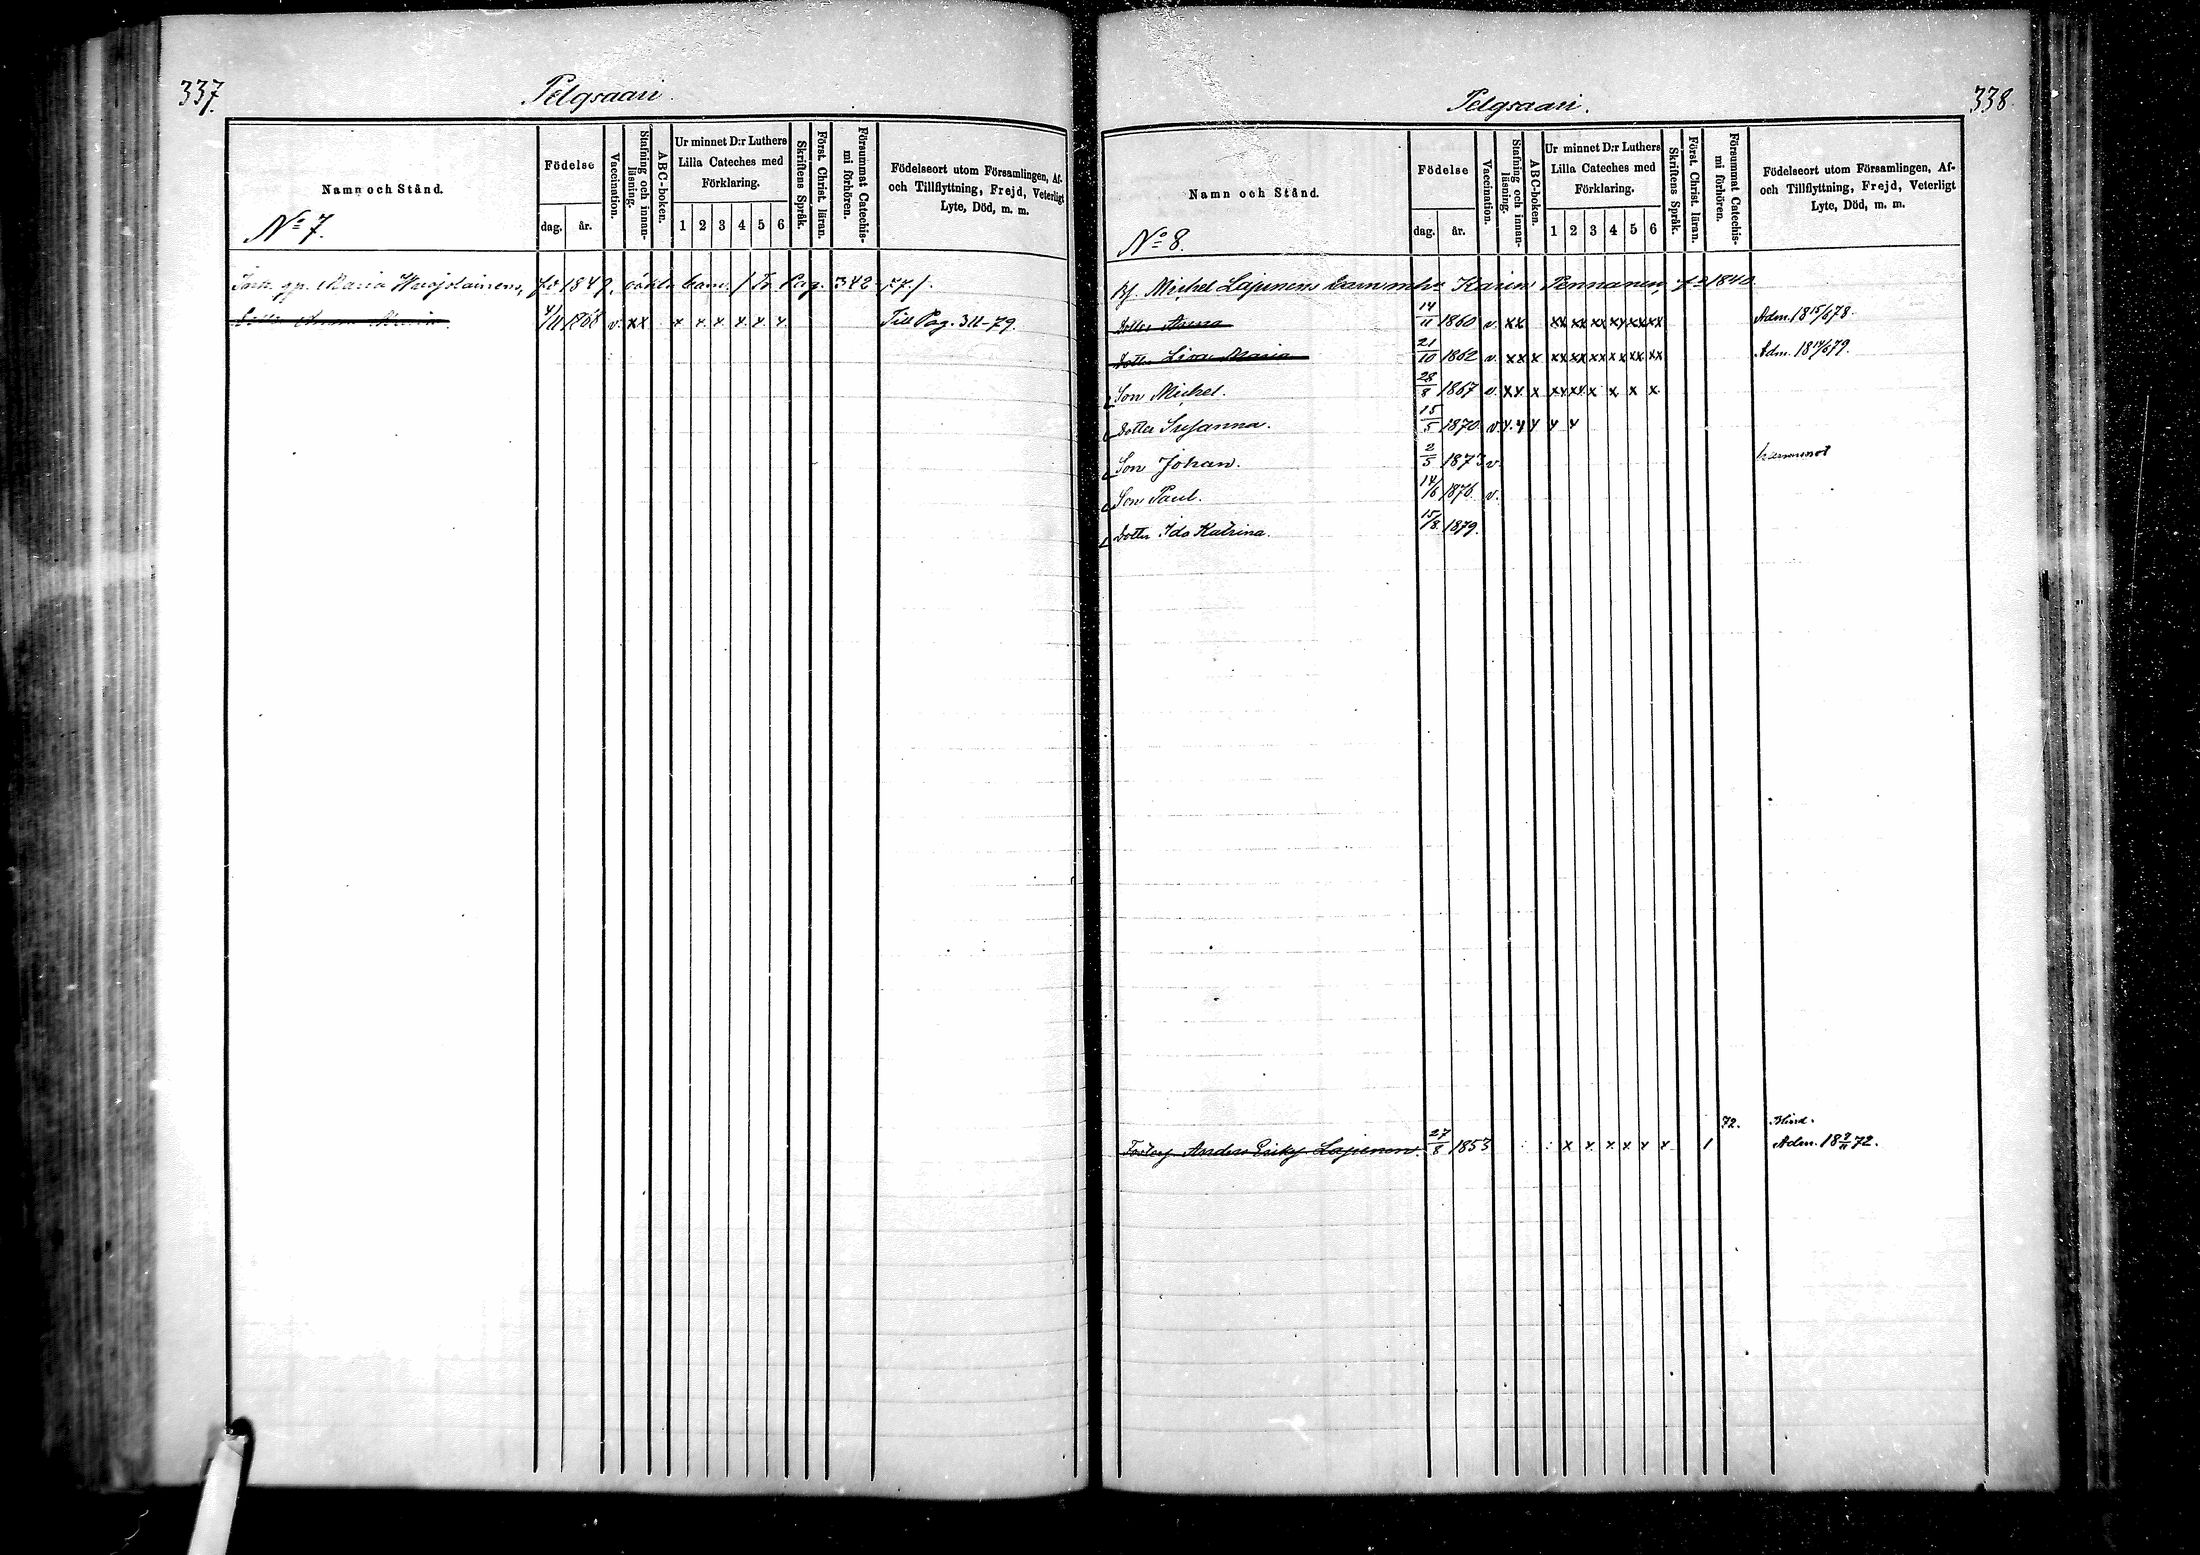 337.
Pelgsaari.
Namn och Stånd.
Födelse
dag.
år.
Vaccination.
Stafning och innan-
läsning.
ABC-boken.
Ur minnet D:r Luthers
Lilla Cateches med
Förklaring.
1 2 3 4 5 6
Skriftens Språk.
Först. Christ. läran.
Försummat Catechis-
mi förhören.
Födelseort utom Församlingen, Af-
och Tillflyttning, Frejd, Veterligt
Lyte, Död, m. m.
No 7.
Maria 1849, oäkta barn / Fr. Pag. 342-77/.
Dotter Anna Maria. 4/11 1868 v. x x x x x x x x Till Pag. 311-79.
338.
Pelgsaari.
Namn och Stånd.
Födelse
dag.
år.
Vaccination.
Stafning och innan-
läsning.
ABC-boken.
Ur minnet D:r Luthers
Lilla Cateches med
Förklaring.
1 2 3 4 5 6
Skriftens Språk.
Först. Christ. läran.
Försummat Catechis-
mi förhören.
Födelseort utom Församlingen, Af-
och Tillflyttning, Frejd, Veterligt
Lyte, Död, m. m.
No 8.
Michel Lapinens barn m. hu Karin Pennanen, fd 1840.
Dotter Anna 14/11 1860 v. xx xx xx xx xx xx xx Adm. 18 15/6 78.
Dotter Lisa Maria 21/10 1862 v. xx x xx xx xx xx xx xx Adm. 18 14/6 79.
Son Michel. 28/8 1867 v. xx x xx xx x x x x
Dotter Susanna. 15/5 1870 v. x x x x x
Son Johan. 2/5 1873 v.
Son Paul. 14/6 1876 v.
Dotter Ida Katrina. 15/8 1879.
72. Blind.
Anders Eriks. Lapinen. 27/8 1853 x x x x x x 1 Adm. 72.